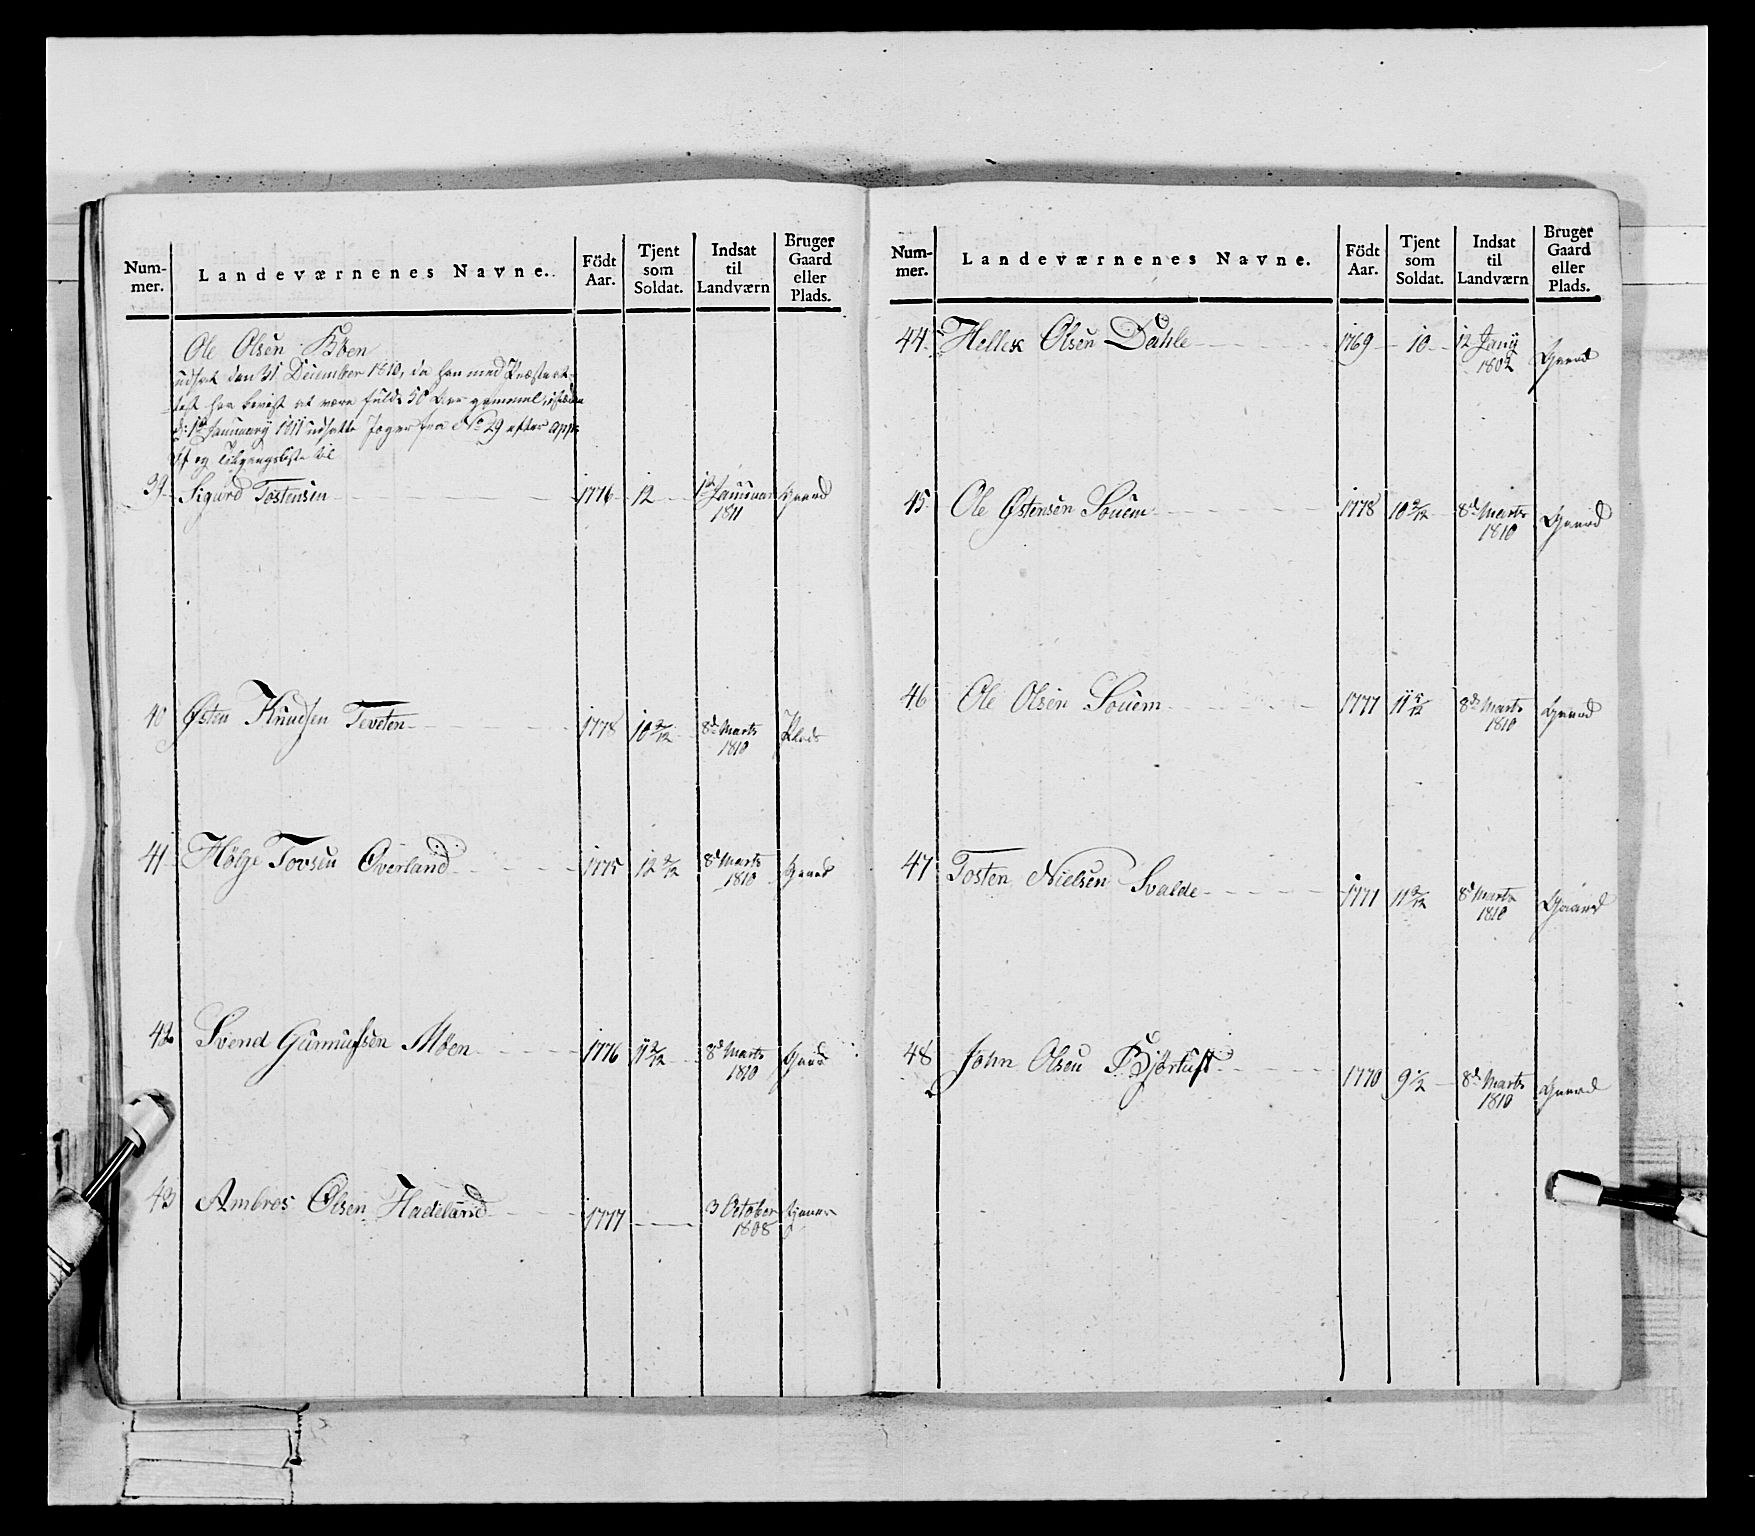 Num-
mer.
Landeværnenes Navne.
Födt
Aar.
Tjent
som
Soldat.
Indsat
til
Landværn
Bruger
Gaard
eller
Plads.
Ole Olsen Böen
udsat den 31 December 1810, da han med Præsteat-
test har bevist at være fulde 50 Aar gammel, istæden
d: 1ste Januarij 1811 udsatte Jæger fra No 29 efter app:
og Tilgangsliste til
39 Sigurd Tostensen 1776 12 1ste Januar Gaard
1811
40 Østen Knudsen Teveten 1778 10 2/12 8de Marts Plads
1810
41 Hölge Tovsen Overland 1775 12 2/12 8de Marts Gaard
1810
42 Svend Gunnufsen Möen 1776 11 2/12 8de Marts Gaard
1810
43 Ambros Olsen Hadeland 1777 3 October
1808
Num-
mer.
Landeværnenes Navne.
Födt
Aar.
Tjent
som
Soldat.
Indsat
til
Landværn
Bruger
Gaard
eller
Plads.
44 Hellek Olsen Dahle 1769 10 12 Janij Gaard
1802
45 Ole Østensen Souem 1778 10 2/12 8de Marts Gaard
1810
46 Ole Olsen Souem 1777 11 5/12 8de Marts Gaard
1810
47 Tosten Nielsen Svalde 1771 11 2/12 8de Marts Gaard
1810
48 John Olsen Björtuft 1770 9 1/2 8de Marts Gaard
1810